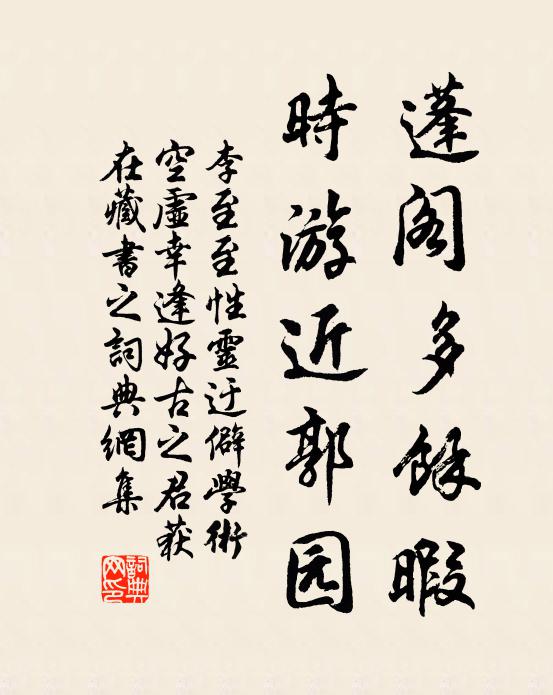 蓬阁多餘暇
時游近郭园
李至至性靈迂僻學術
空虛幸逢好古之君获
在藏書之詞典網集
詞典网印